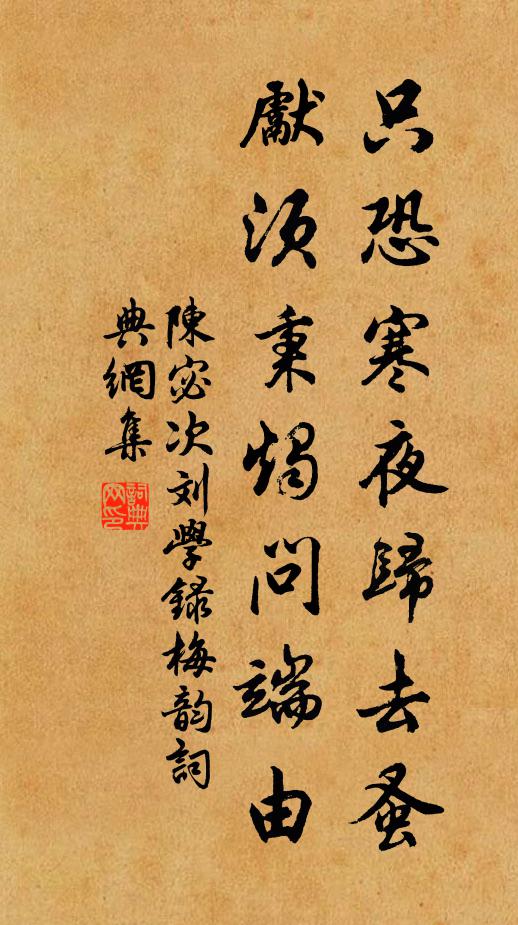 只恐寒夜歸去蚤
獻須秉燭問端由
陳宓次刘學錄梅韵詞
典網集
詞典
网印